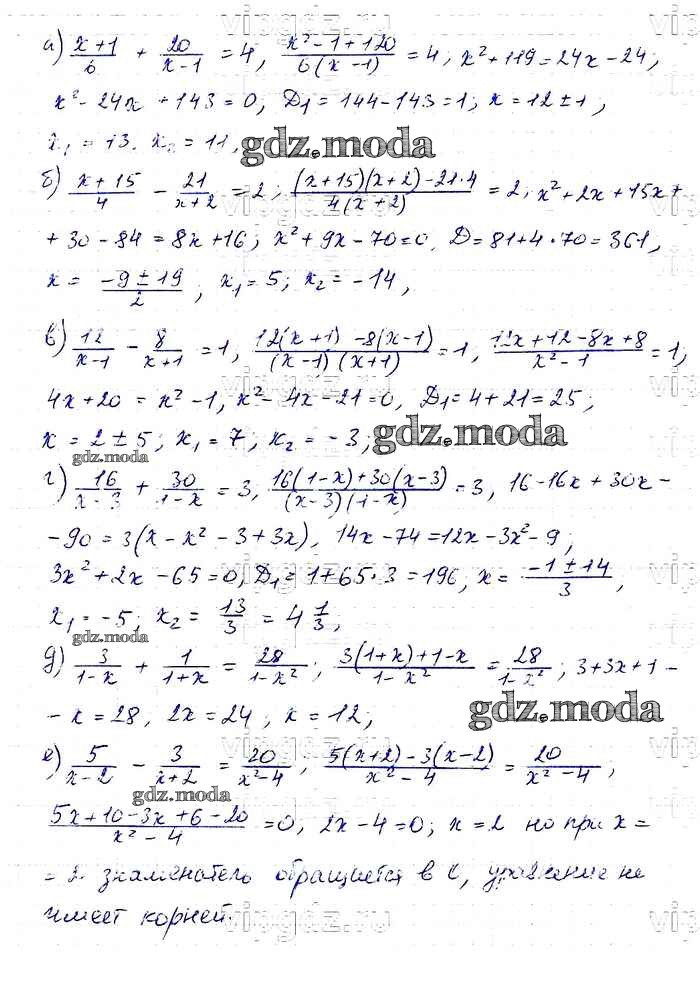 а) (x+1)/6 + 20/(x-1) = 4, (x²-1+120)/(6(x-1)) = 4; x²+119=24x-24;
x²-24x+143=0, D₁=144-143=1; x=12±1,
x₁=13. x₂=11,
gdz.moda
б) (x+15)/4 - 21/(x+2) = 2; ((x+15)(x+2)-21·4)/(4(x+2)) = 2, x²+2x+15x+
+30-84=8x+16; x²+9x-70=0, D=81+4·70=361,
x = (-9±19)/2; x₁=5; x₂=-14,
в) 12/(x-1) - 8/(x+1) = 1, (12(x+1)-8(x-1))/((x-1)(x+1)) = 1, (12x+12-8x+8)/(x²-1) = 1;
4x+20 = x²-1, x²-4x-21=0, D₁=4+21=25;
x=2±5; x₁=7, x₂=-3;
gdz.moda
gdz.moda
г) 16/(x-3) + 30/(1-x) = 3, (16(1-x)+30(x-3))/((x-3)(1-x)) = 3, 16-16x+30x-
-90=3(x-x²-3+3x), 14x-74=12x-3x²-9;
3x²+2x-65=0, D₁=1+65·3=196, x=(-1±14)/3,
x₁=-5; x₂=13/3=4 1/3;
gdz.moda
д) 3/(1-x) + 1/(1+x) = 28/(1-x²); (3(1+x)+1-x)/(1-x²) = 28/(1-x²); 3+3x+1-
-x=28, 2x=24, x=12;
gdz.moda
е) 5/(x-2) - 3/(x+2) = 20/(x²-4); (5(x+2)-3(x-2))/(x²-4) = 20/(x²-4);
gdz.moda
(5x+10-3x+6-20)/(x²-4) = 0, 2x-4=0; x=2 но при x=
=2 знаменатель обращается в 0, уравнение не
имеет корней.
vipgdz.ru